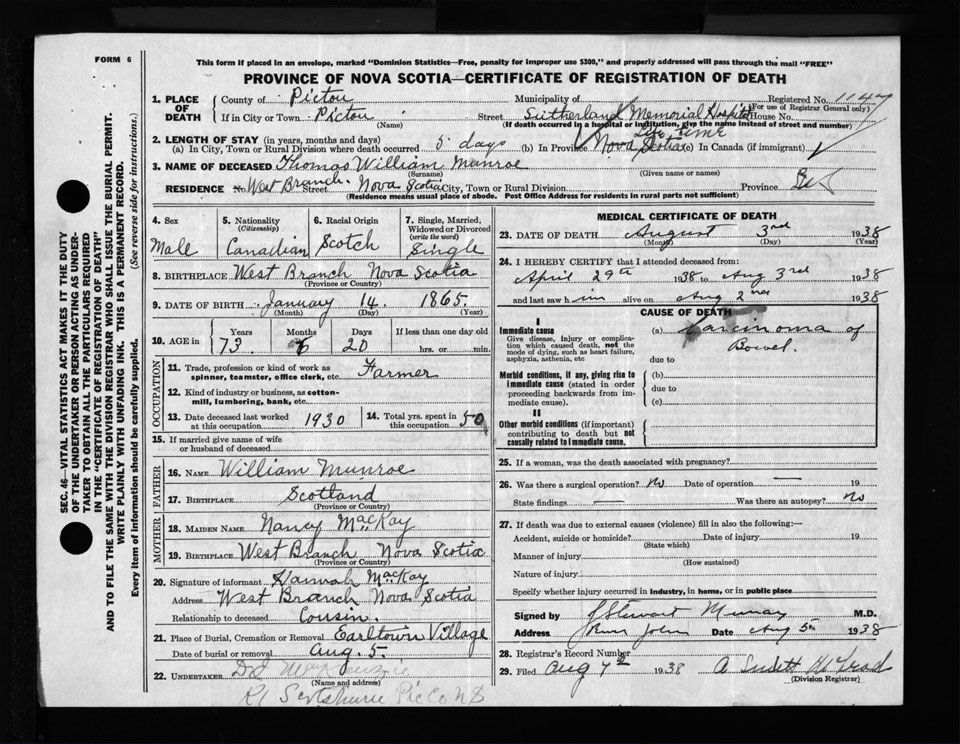 FORM 6
This form if placed in an envelope, marked "Dominion Statistics—Free, penalty for improper use $300," and properly addressed will pass through the mail "FREE"
PROVINCE OF NOVA SCOTIA—CERTIFICATE OF REGISTRATION OF DEATH
SEC. 46—VITAL STATISTICS ACT MAKES IT THE DUTY
OF THE UNDERTAKER OR PERSON ACTING AS UNDER-
TAKER TO OBTAIN ALL THE PARTICULARS REQUIRED
IN THE "CERTIFICATE OF REGISTRATION OF DEATH"
AND TO FILE THE SAME WITH THE DIVISION REGISTRAR WHO SHALL ISSUE THE BURIAL PERMIT.
WRITE PLAINLY WITH UNFADING INK. THIS IS A PERMANENT RECORD.
Every item of information should be carefully supplied. (See reverse side for instructions.)
1. PLACE OF DEATH
County of Pictou Municipality of Registered No. 1147
(For use of Registrar General only)
If in City or Town Pictou Street Sutherland Memorial Hospital House No.
(Name) (If death occurred in a hospital or institution, give the name instead of street and number)
2. LENGTH OF STAY (in years, months and days) Life time
(a) In City, Town or Rural Division where death occurred 5 days (b) In Province Nova Scotia (c) In Canada (if immigrant)
3. NAME OF DECEASED Thomas William Munroe
(Surname) (Given name or names)
RESIDENCE No. West Branch Street Nova Scotia City, Town or Rural Division Province
(Residence means usual place of abode. Post Office Address for residents in rural parts not sufficient)
4. Sex Male
5. Nationality (Citizenship) Canadian
6. Racial Origin Scotch
7. Single, Married, Widowed or Divorced (write the word) Single
8. BIRTHPLACE West Branch Nova Scotia
(Province or Country)
9. DATE OF BIRTH January 14 1865
(Month) (Day) (Year)
10. AGE in Years 73 Months 6 Days 20 If less than one day old hrs. or min.
OCCUPATION
11. Trade, profession or kind of work as spinner, teamster, office clerk, etc. Farmer
12. Kind of industry or business, as cotton-mill, lumbering, bank, etc.
13. Date deceased last worked at this occupation 1930
14. Total yrs. spent in this occupation 50
15. If married give name of wife or husband of deceased
FATHER
16. NAME William Munroe
17. BIRTHPLACE Scotland
(Province or Country)
MOTHER
18. MAIDEN NAME Nancy MacKay
19. BIRTHPLACE West Branch Nova Scotia
(Province or Country)
20. Signature of informant Hannah MacKay
Address West Branch Nova Scotia
Relationship to deceased Cousin.
21. Place of Burial, Cremation or Removal Earltown Village
Date of burial or removal Aug. 5.
22. UNDERTAKER
(Name and address)
MEDICAL CERTIFICATE OF DEATH
23. DATE OF DEATH August 3rd 1938
(Month) (Day) (Year)
24. I HEREBY CERTIFY that I attended deceased from:
April 29th 1938 to Aug 3rd 1938
and last saw h im alive on Aug 2nd 1938
CAUSE OF DEATH
I
Immediate cause (a) Carcinoma of Bowel.
Give disease, injury or complication which caused death, not the mode of dying, such as heart failure, asphyxia, asthenia, etc
due to
Morbid conditions, if any, giving rise to immediate cause (stated in order proceeding backwards from immediate cause). (b)
due to
(c)
II
Other morbid conditions (if important) contributing to death but not causally related to immediate cause.
25. If a woman, was the death associated with pregnancy?
26. Was there a surgical operation? No Date of operation — 19
State findings — Was there an autopsy? No
27. If death was due to external causes (violence) fill in also the following:—
Accident, suicide or homicide? Date of injury 19
(State which)
Manner of injury
(How sustained)
Nature of injury
Specify whether injury occurred in industry, in home, or in public place
Signed by J Stewart Murray M.D.
Address River John Date Aug 5th 1938
28. Registrar's Record Number
29. Filed Aug 7th 1938
(Division Registrar)